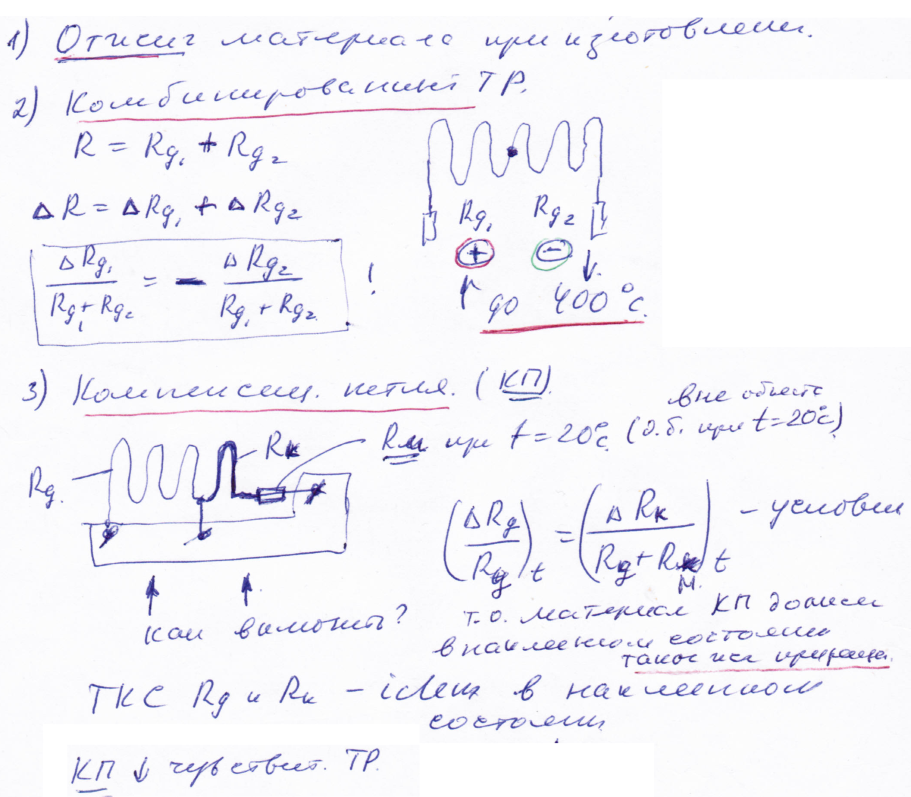 1) Отжиг материала при изготовлении.
2) Комбинированный ТР.
R = Rg₁ + Rg₂
ΔR = ΔRg₁ + ΔRg₂
ΔRg₁ / (Rg₁ + Rg₂) = − ΔRg₂ / (Rg₁ + Rg₂) !
Rg₁ Rg₂
+ −
↑ до 400°C. ↓
3) Компенсац. петля. (КП).
вне объекта
Rg. Rк Rм при t = 20°C (д.б. при t = 20°C)
(ΔRg / Rg)t = (ΔRк / (Rg + Rм))t – условие
как включить?
т.о. материал КП должен
в наклеенном состоянии
такое же приращ.
ТКС Rg и Rк – в наклеенном
состоянии
КП ↓ чувствит. ТР.